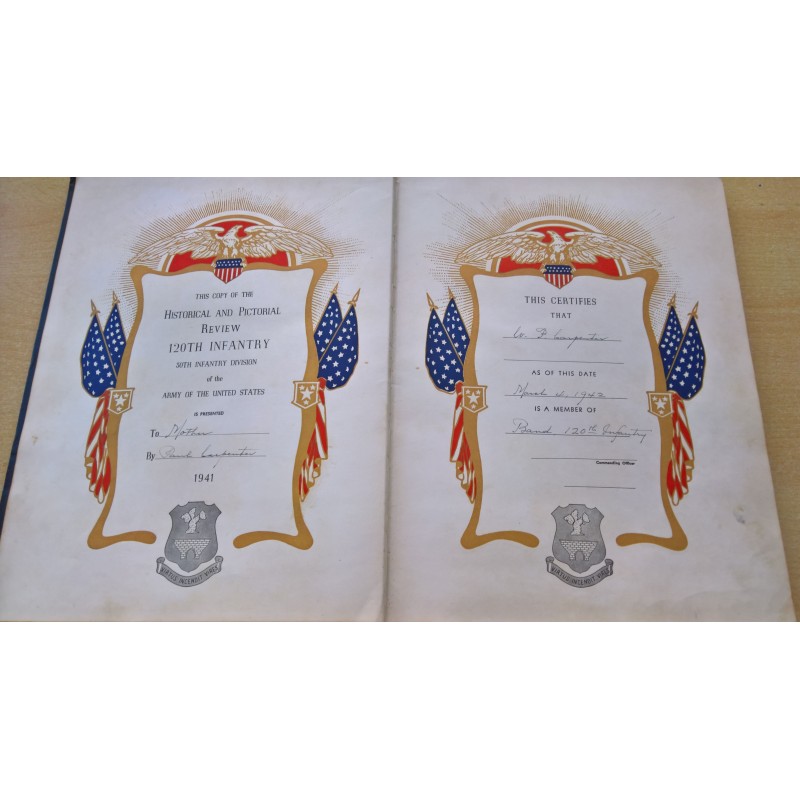 THIS COPY OF THE
HISTORICAL AND PICTORIAL
REVIEW
120TH INFANTRY
30TH INFANTRY DIVISION
of the
ARMY OF THE UNITED STATES
IS PRESENTED
To Mother
By Paul Carpenter
1941
VIRTUS INCENDIT VIRES
THIS CERTIFIES
THAT
W. P. Carpenter
AS OF THIS DATE
March 2, 1942
IS A MEMBER OF
Band 120th Infantry
Commanding Officer
VIRTUS INCENDIT VIRES